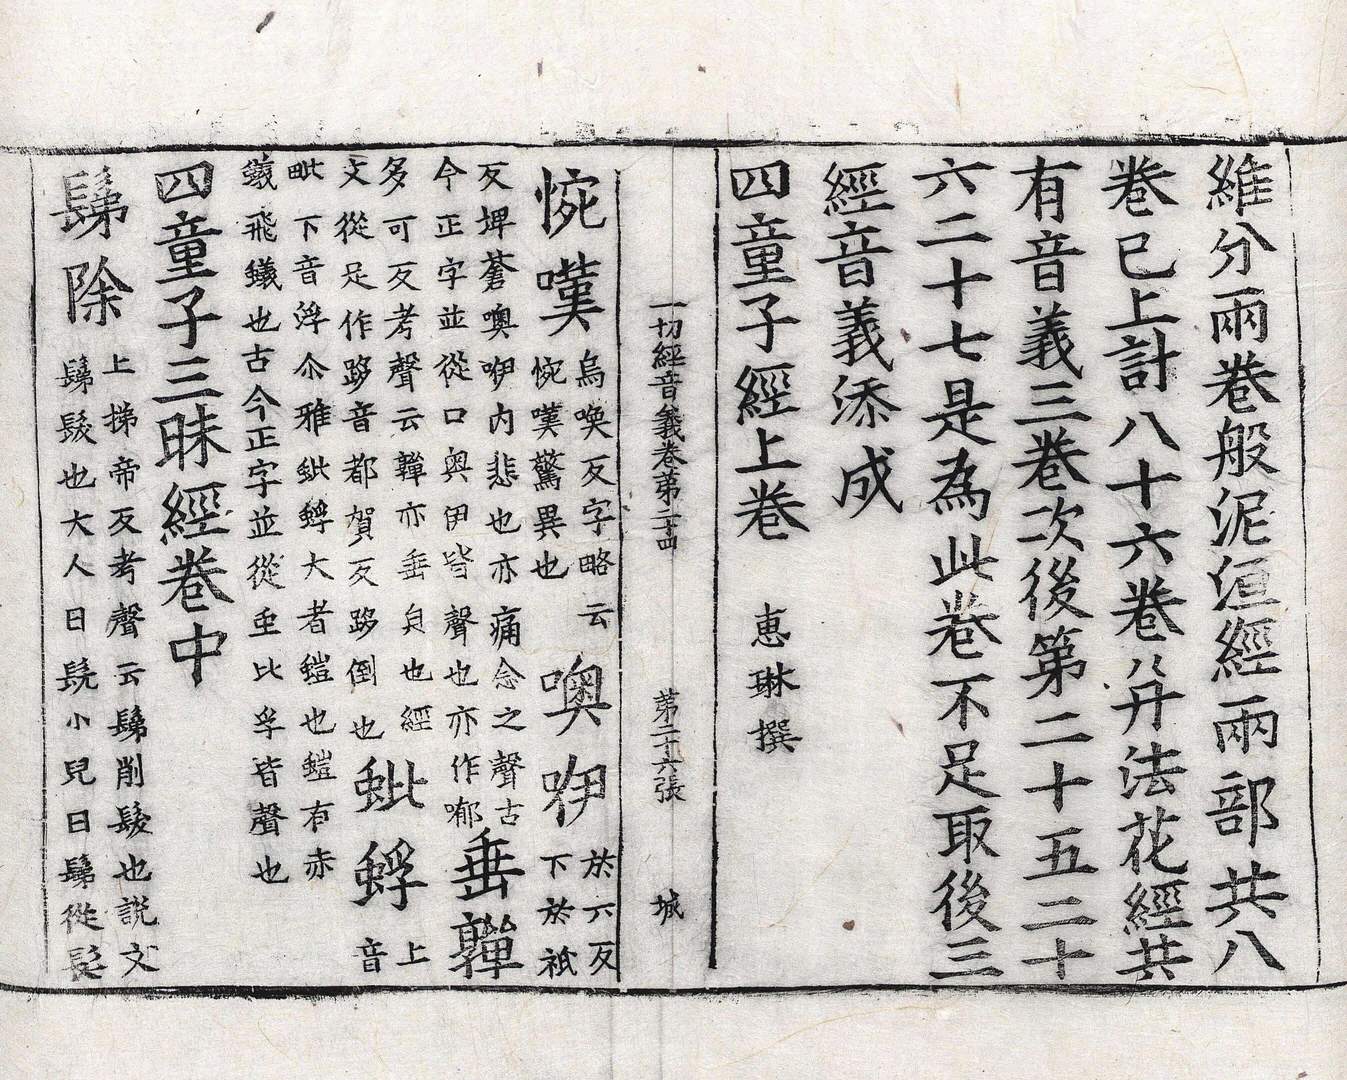 維分兩卷般泥洹經兩部共八
卷已上計八十六卷以并法花經共
有音義三卷次後第二十五二十
六二十七是為此卷不足取後三
經音義添成
四童子經上卷 惠琳撰
一切經音義卷第二十四 第二十六張 城
惋嘆 烏喚反字略云
惋嘆驚異也
噢咿 於六反
下於祇
反埤蒼噢咿內悲也亦痛念之聲古
今正字並從口奧伊皆聲也亦作噢
垂嚲
多可反考聲云嚲亦垂皃也經
文從足作跢音都賀反跢倒也
蚍蜉 上
音
毗下音浮尒雅蚍蜉大者螘也螘有赤
蟻飛蟻也古今正字並從虫比孚皆聲也
四童子三昧經卷中
鬀除 上梯帝反考聲云鬀削髮也說文
鬀髮也大人曰髡小兒曰鬀從髟